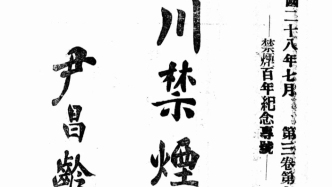 國二十八年七月　第三卷第
—禁煙百年紀念專號—
川禁煙
尹昌齡